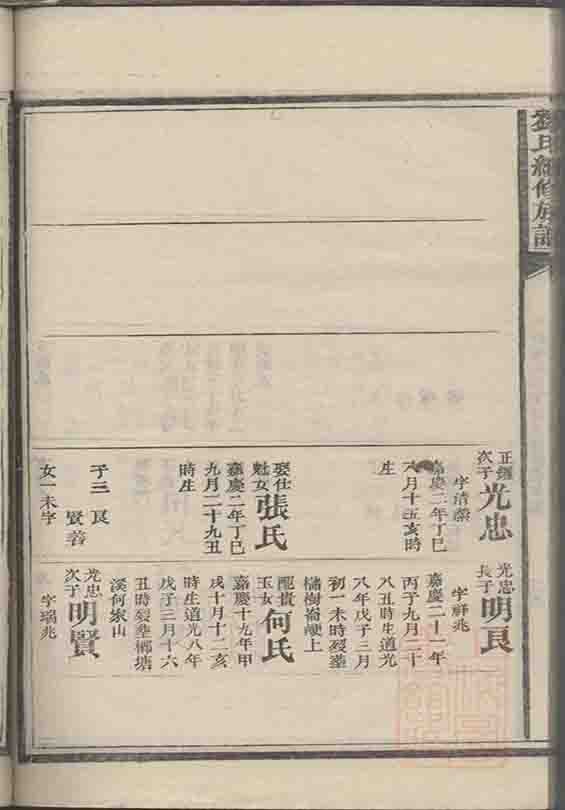 劉氏續修族譜
正鑑
次子
光忠
字清榮
嘉慶二年丁巳
六月十五亥時
生
娶仕
魁女
張氏
嘉慶二年丁巳
九月二十九丑
時生
子三 良
賢 善
女一未字
光忠
長子
明良
字祥兆
嘉慶二十一年
丙子九月二十
八丑時生道光
八年戊子三月
初一未時裂葬
樠樹崙壋上
配貴
玉女
何氏
嘉慶十九年甲
戌十月十二亥
時生道光八年
戊子三月十六
丑時裂葬楖塘
溪何家山
光忠
次子
明賢
字瑞兆